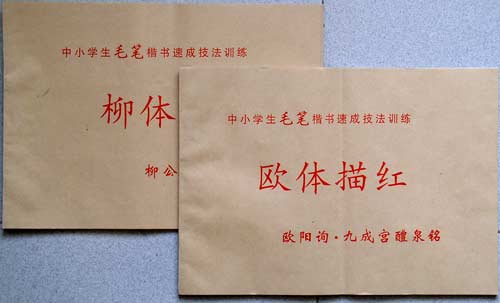 中小学生毛笔楷书速成技法训练
柳体
柳公
中小学生毛笔楷书速成技法训练
欧体描红
欧阳询·九成宫醴泉铭